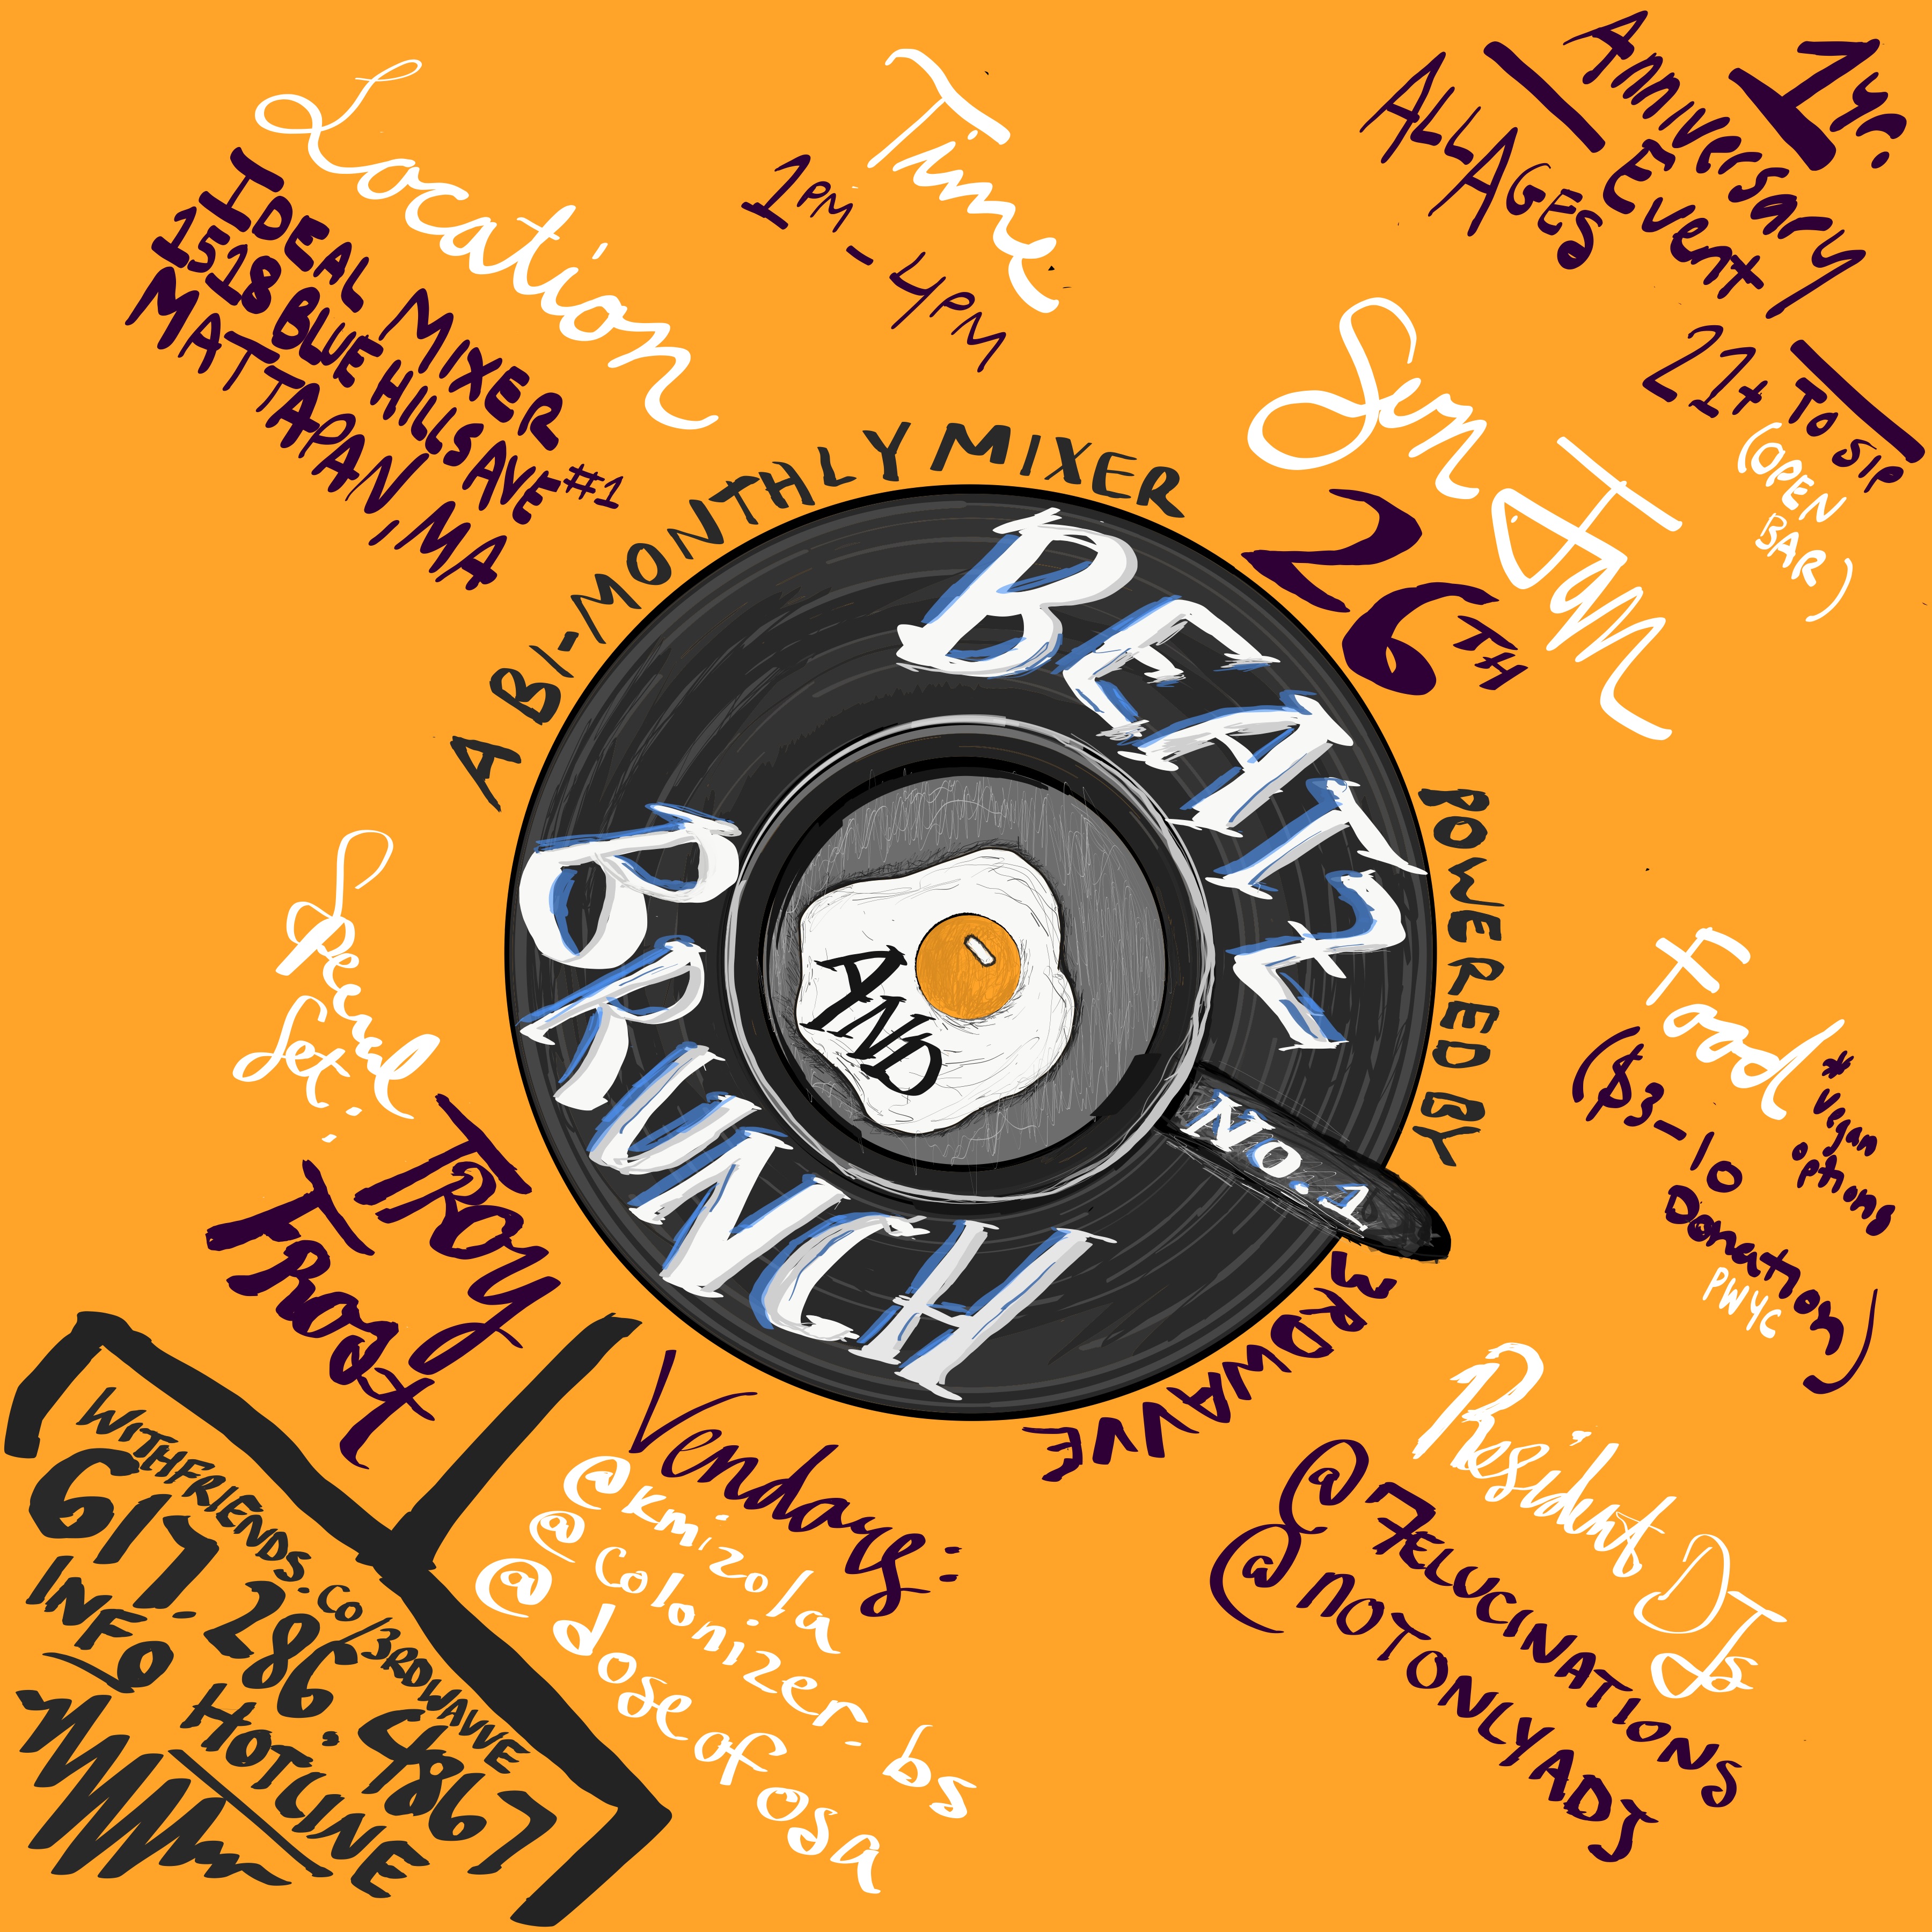 Location
IDEAL MIXER
1518 BLUE HILLS AVE #1
MATTAPAN, MA
Time
1PM - 4PM
1yr.
Anniversary
Event
ALL AGES
21+ TO SIP
(OPEN
BAR)
Sun Jan
26TH
A BI-MONTHLY MIXER
BEATZ
AND
BRUNCH
NO.1
POWERED BY
3RDWAVVE
Special
Set:
Troy
Frost
Food
*Vegan
options
($3-10
Donation)
PWYC
Resident DJs
@7ELUCINATIONS
@NOTONLYADJ
Vendors:
@kmizola
@colonizer_bs
@doseofosa
WITHFRIENDS.CO/3RDWAVVE
617.286.4867
INFO HOTLINE